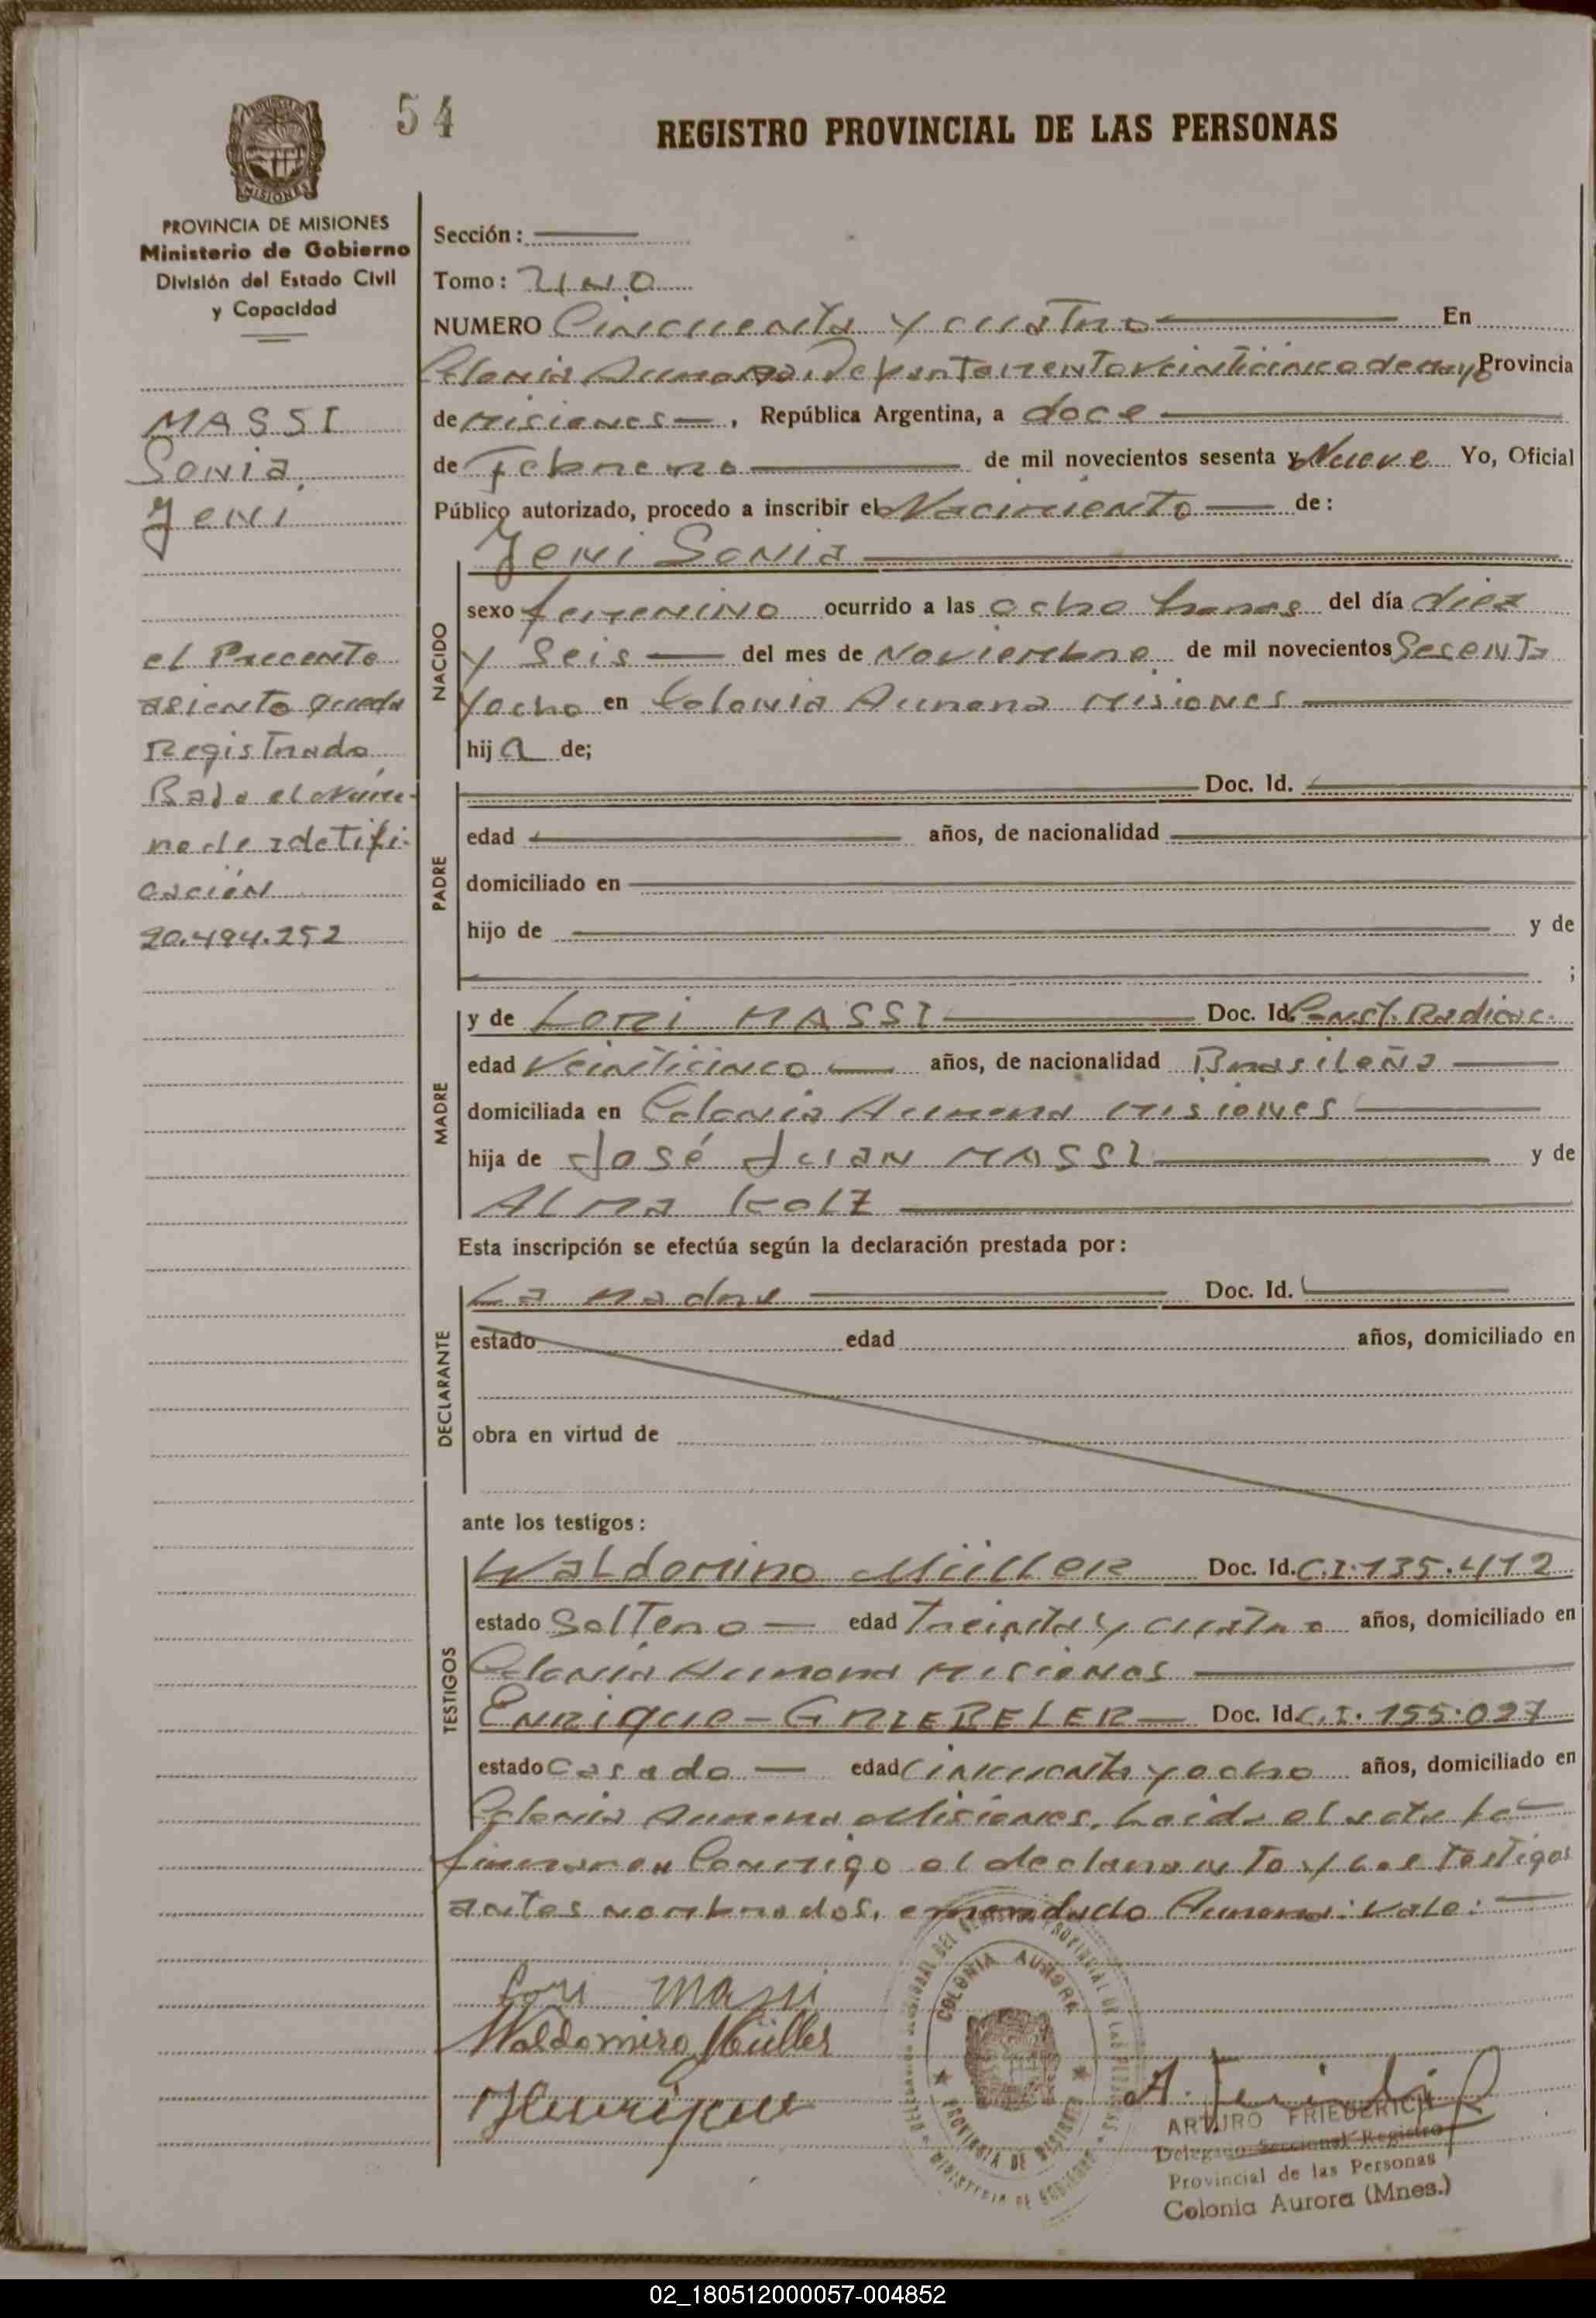 54
REGISTRO PROVINCIAL DE LAS PERSONAS
PROVINCIA DE MISIONES
Ministerio de Gobierno
División del Estado Civil
y Capacidad
MASSI
Sonia,
Jeni
el Precente
asiento queda
Registrado
Bajo el Núme-
ro de idetifi-
cación
20.494.252
Sección:
Tomo: UNO
NUMERO Cincuenta y cuatro En
Colonia Aurora. Departamento veinticinco de mayo Provincia
de Misiones, República Argentina, a doce
de Febrero de mil novecientos sesenta y Nueve Yo, Oficial
Público autorizado, procedo a inscribir el Nacimiento de:
Jeni Sonia
NACIDO
sexo femenino ocurrido a las ocho horas del día diez
y Seis del mes de Noviembre de mil novecientos Sesenta
y ocho en Colonia Aurora Misiones
hija de;
PADRE
Doc. Id.
edad años, de nacionalidad
domiciliado en
hijo de y de
;
MADRE
y de Lori MASSI Doc. Id. Const. Radicac.
edad Veinticinco años, de nacionalidad Brasileña
domiciliada en Colonia Aurora Misiones
hija de José Juan MASSI y de
Alma Kolz
Esta inscripción se efectúa según la declaración prestada por:
DECLARANTE
La madre Doc. Id.
estado edad años, domiciliado en
obra en virtud de
ante los testigos:
TESTIGOS
Waldomiro Müller Doc. Id. C.I. 135.412
estado Soltero edad Treinta y cuatro años, domiciliado en
Colonia Aurora Misiones
Enrique - GRIEBELER Doc. Id. C.I. 155.027
estado Casado edad Cincuenta y ocho años, domiciliado en
Colonia Aurora Misiones. Leida el acta la
firmaron Conmigo el declarante y los testigos
antes nombrados. enmendado Aurora: vale:
Lori Massi
Waldomiro Müller
COLONIA AURORA
PROVINCIA DE MISIONES
MINISTERIO DE GOBIERNO
ARTURO FRIEDERICH
Delegado Seccional Registro
Provincial de las Personas
Colonia Aurora (Mnes.)
02_180512000057-004852